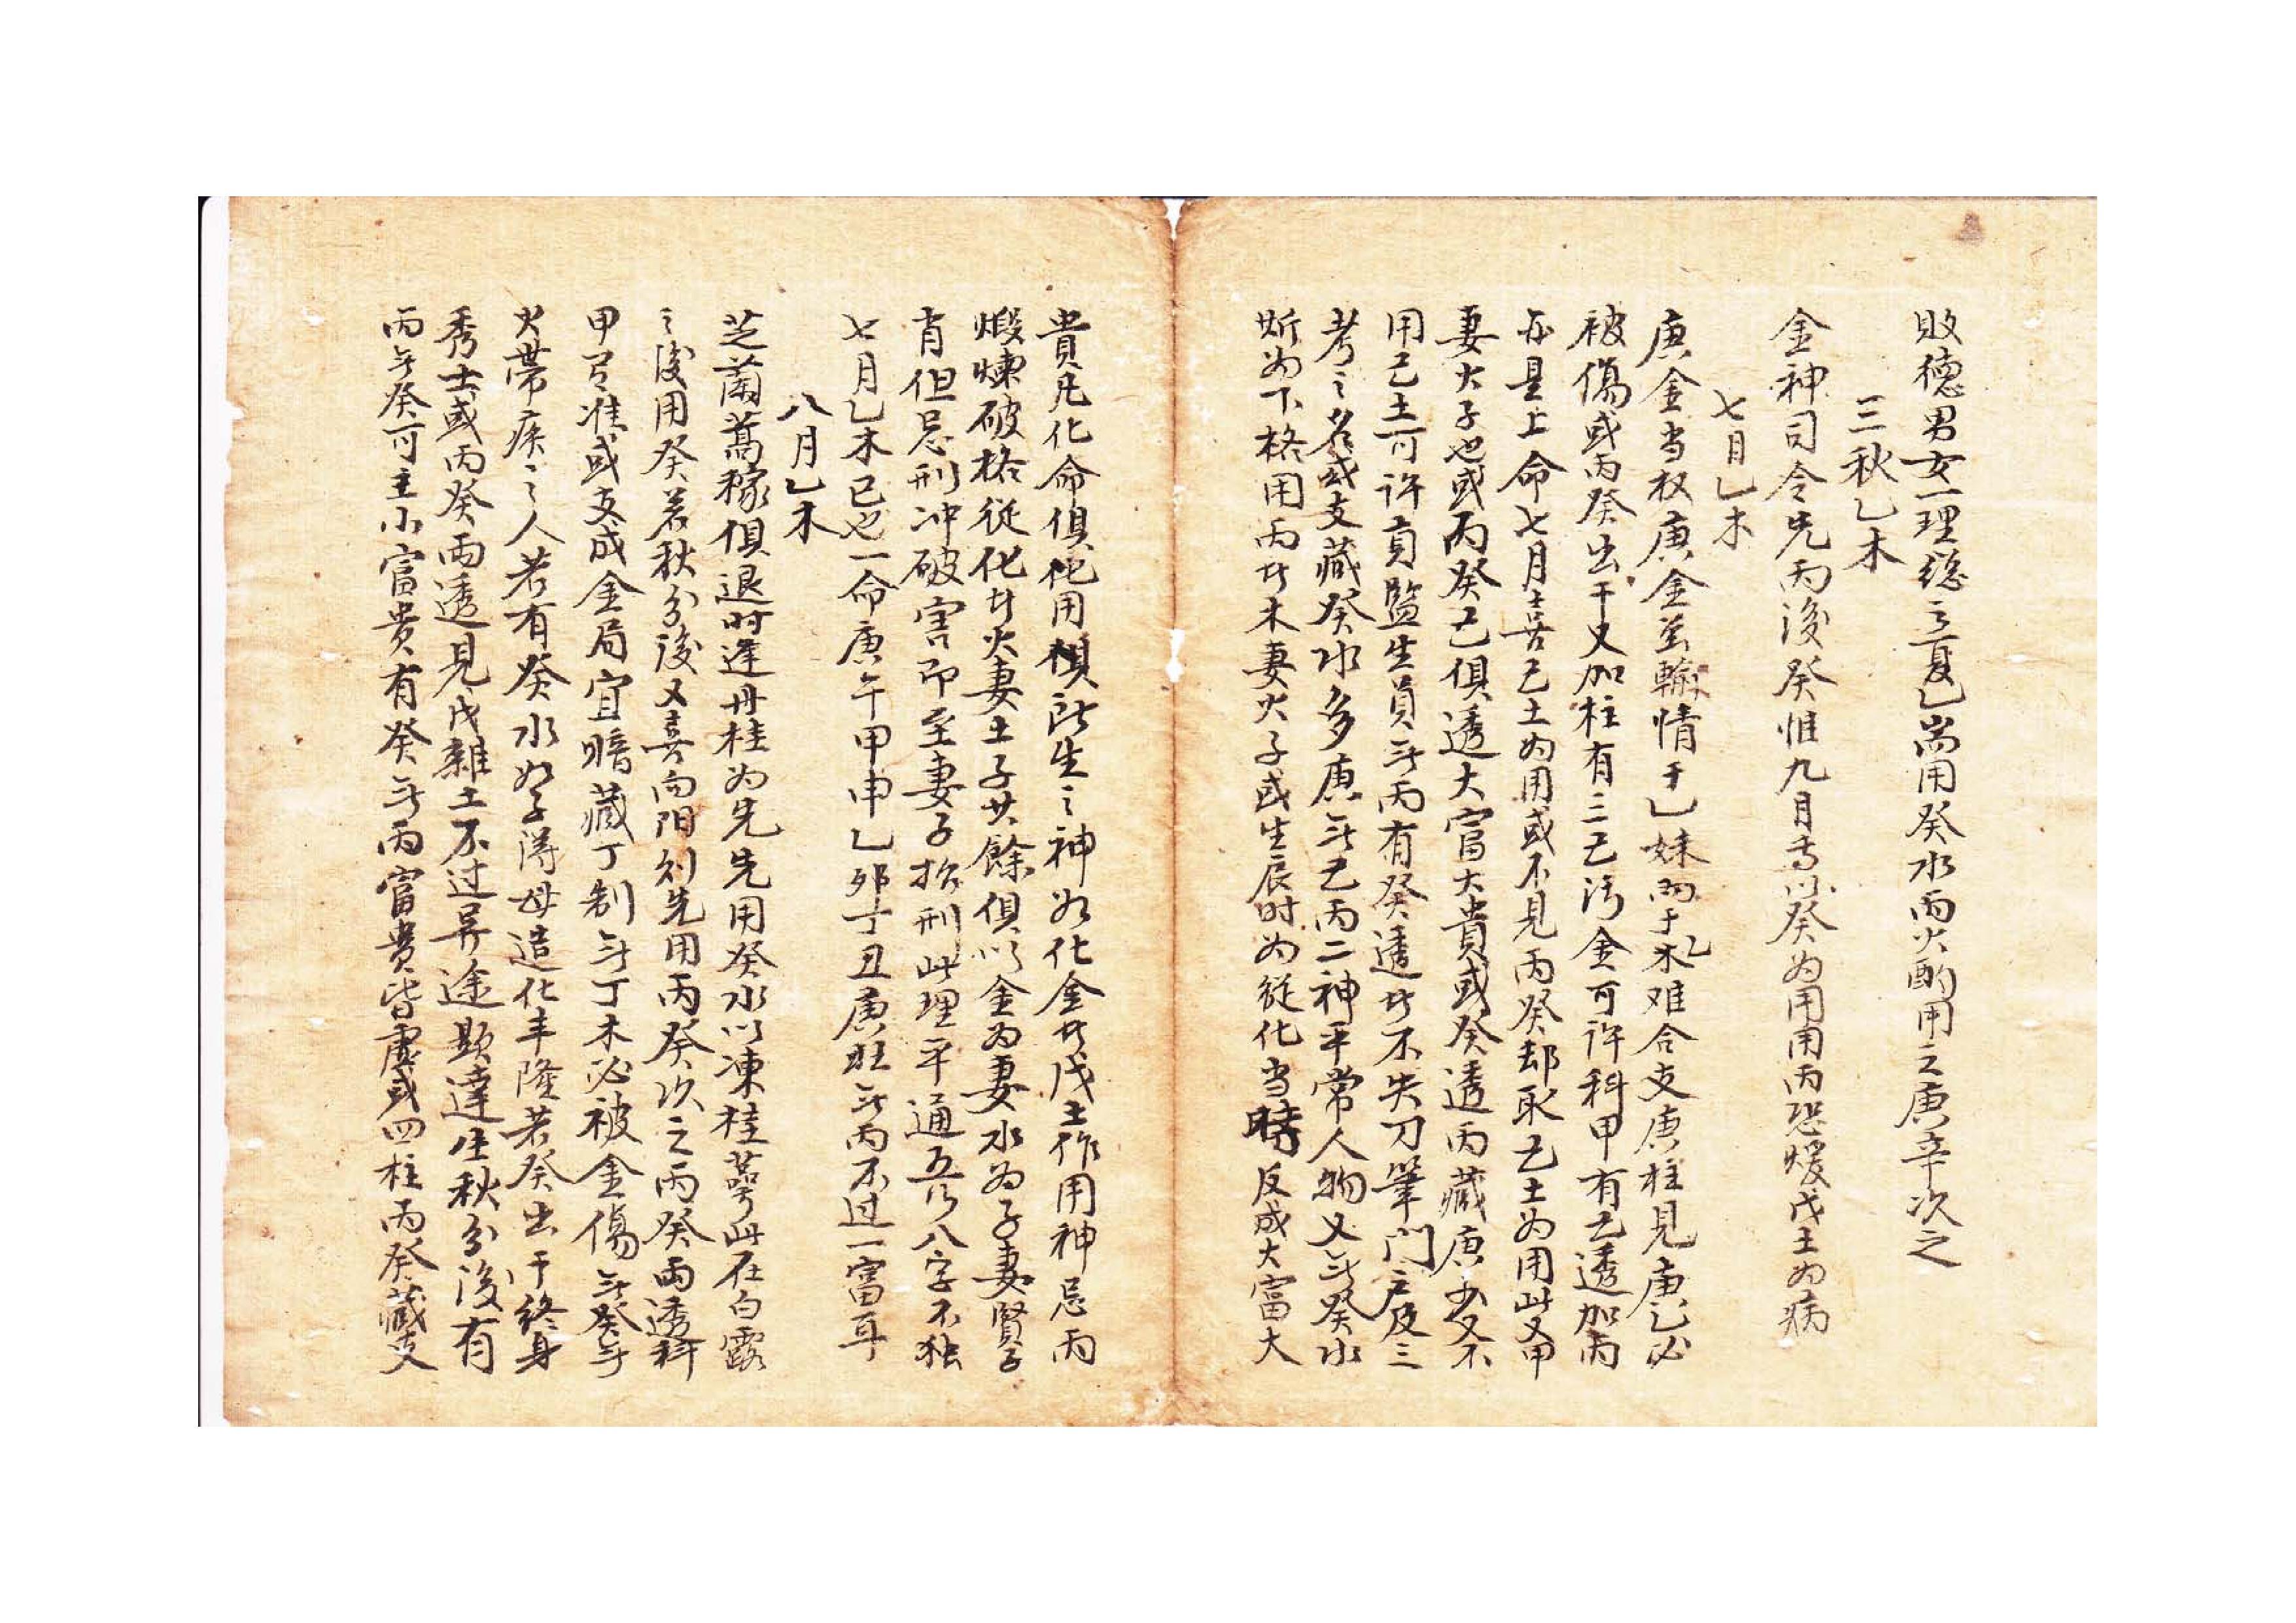 敗德男女一理總之夏乙耑用癸水丙火酌用之庚辛次之
三秋乙木
金神司令先丙後癸惟九月专以癸为用用丙恐煖戊土为病
七月乙木
庚金当权庚金虽輸情于乙妹而于乙木难合支庚柱見庚乙必
被傷或丙癸出干又加柱有二己污金可许科甲有己透加丙
亦是上命七月喜己土为用或不見丙癸却取己土为用此又甲
妻火子也或丙癸己俱透大富大貴或癸透丙藏庚少又不
用己土可许貢監生員无丙有癸透廿不失刀筆門户及三
考之名或支藏癸水多庚无己丙二神平常人物又无癸水
斯为下格用丙廿木妻火子或生辰时为從化当時反成大富大
貴凡化命俱他用損所生之神如化金廿戊土作用神忌丙
煅煉破格從化廿火妻土子其餘俱以金为妻水为子妻賢子
肖但忌刑冲破害即至妻子招刑此理平通五行八字不独
七月乙木已也一命庚午甲申乙卯丁丑庚旺无丙不过一富耳
八月乙木
芝蘭蒿稼俱退时逢丹桂为先先用癸水以凍桂萼此在白露
之後用癸若秋分後又喜向阳則先用丙癸次之丙癸两透科
甲名准或支成金局宜暗藏丁制无丁木必被金傷无癸无
火帶疾之人若有癸水如子得母造化丰隆若癸出干終身
秀士或丙癸两透見戊雜土不过异途顯達生秋分後有
丙无癸可主小富貴有癸无丙富貴皆虛或四柱丙癸藏支